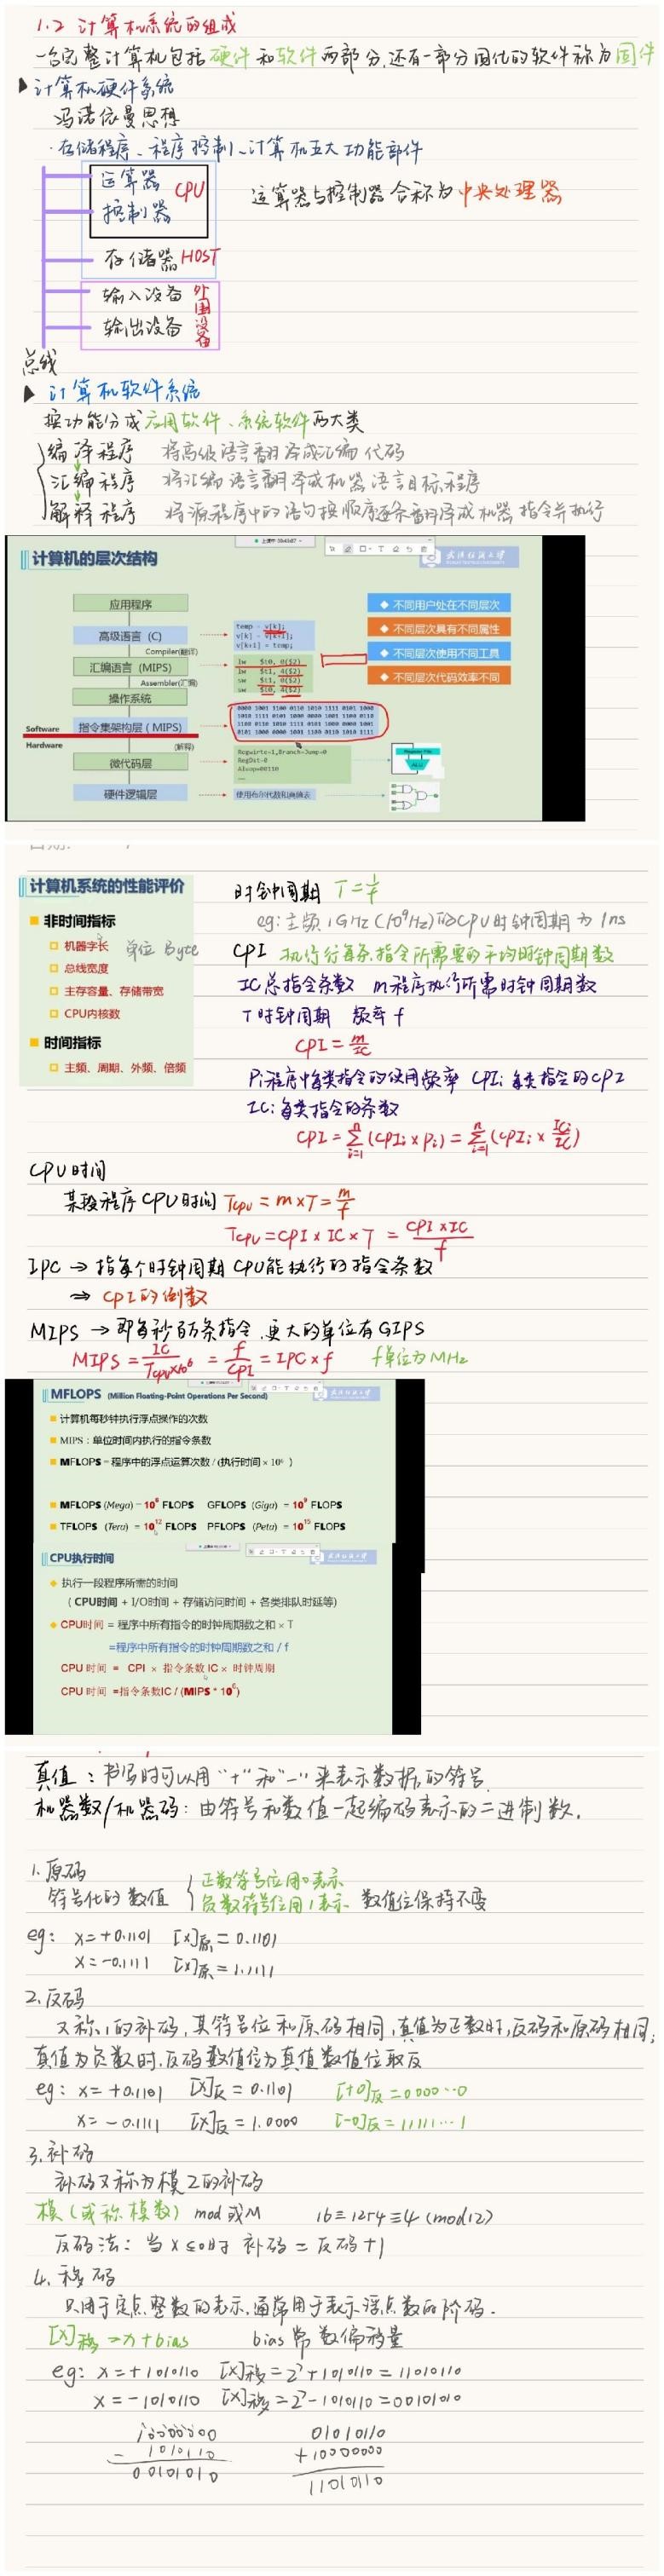 1.2 计算机系统的组成
一台完整计算机包括硬件和软件两部分,还有一部分固化的软件称为固件
▶计算机硬件系统
冯诺依曼思想
·存储程序、程序控制、计算机五大功能部件
运算器 CPU
控制器
运算器与控制器合称为中央处理器
存储器 HOST
输入设备
输出设备
外围设备
总线
▶ 计算机软件系统
按功能分成应用软件、系统软件两大类
编译程序 将高级语言翻译成汇编代码
汇编程序 将汇编语言翻译成机器语言目标程序
解释程序 将源程序中的语句按顺序逐条翻译成机器指令并执行
计算机的层次结构
应用程序
高级语言 (C)
Compiler(编译)
汇编语言 (MIPS)
Assembler(汇编)
操作系统
Software
指令集架构层 (MIPS)
Hardware
(解释)
微代码层
硬件逻辑层
temp = v[k];
v[k] = v[k+1];
v[k+1] = temp;
lw $t0, 0($2)
lw $t1, 4($2)
sw $t1, 0($2)
sw $t0, 4($2)
0000 1001 1100 0110 1010 1111 0101 1000
1010 1111 0101 1000 0000 1001 1100 0110
1100 0110 1010 1111 0101 1000 0000 1001
0101 1000 0000 1001 1100 0110 1010 1111
使用布尔代数和离散表
◆ 不同用户处在不同层次
◆ 不同层次具有不同属性
◆ 不同层次使用不同工具
◆ 不同层次代码效率不同
计算机系统的性能评价
非时间指标
机器字长 单位 Byte
总线宽度
主存容量、存储带宽
CPU内核数
时间指标
主频、周期、外频、倍频
时钟周期 T=1/f
eg:主频1GHz(10⁹Hz)的CPU时钟周期为1ns
CPI 执行每条指令所需要的平均时钟周期数
IC总指令条数 m程序执行所需时钟周期数
T时钟周期 频率f
CPI = m/IC
Pi程序中每类指令的使用频率 CPIi每类指令的CPI
ICi每类指令的条数
CPI = Σ(i=1,n)(CPIi × Pi) = Σ(i=1,n)(CPIi × ICi/IC)
CPU时间
某段程序CPU时间 Tcpu = m×T = m/f
Tcpu = CPI × IC × T = CPI×IC/f
IPC → 指每个时钟周期CPU能执行的指令条数
⇒ CPI的倒数
MIPS → 即每秒百万条指令,更大的单位有GIPS
MIPS = IC/(Tcpu×10⁶) = f/CPI = IPC × f f单位为MHz
MFLOPS (Million Floating-Point Operations Per Second)
计算机每秒钟执行浮点操作的次数
MIPS：单位时间内执行的指令条数
MFLOPS = 程序中的浮点运算次数 / (执行时间 × 10⁶ )
MFLOPS (Mega) = 10⁶ FLOPS GFLOPS (Giga) = 10⁹ FLOPS
TFLOPS (Tera) = 10¹² FLOPS PFLOPS (Peta) = 10¹⁵ FLOPS
CPU执行时间
◆ 执行一段程序所需的时间
( CPU时间 + I/O时间 + 存储访问时间 + 各类排队时延等)
◆ CPU时间 = 程序中所有指令的时钟周期数之和 × T
=程序中所有指令的时钟周期数之和 / f
CPU 时间 = CPI × 指令条数 IC × 时钟周期
CPU 时间 =指令条数IC / (MIPS * 10⁶)
真值：书写时可以用“+”和“-”来表示数据的符号.
机器数/机器码：由符号和数值一起编码表示的二进制数.
1.原码
符号化的数值
正数符号位用0表示
负数符号位用1表示 数值位保持不变
eg: x=+0.1101 [x]原=0.1101
x=-0.1111 [x]原=1.1111
2.反码
又称1的补码,其符号位和原码相同,真值为正数时,反码和原码相同;
真值为负数时,反码数值位为真值数值位取反
eg: x=+0.1101 [x]反=0.1101 [+0]反=0000···0
x=-0.1111 [x]反=1.0000 [-0]反=11111···1
3.补码
补码又称为模2的补码
模(或称模数) mod或M 16≡12+4≡4 (mod12)
反码法：当x≤0时 补码=反码+1
4.移码
只用于定点整数的表示,通常用于表示浮点数的阶码.
[x]移=x+bias bias常数偏移量
eg: x=+1010110 [x]移=2⁷+1010110=11010110
x=-1010110 [x]移=2⁷-1010110=00101010
10000000 01010110
- 1010110 +10000000
00101010 11010110